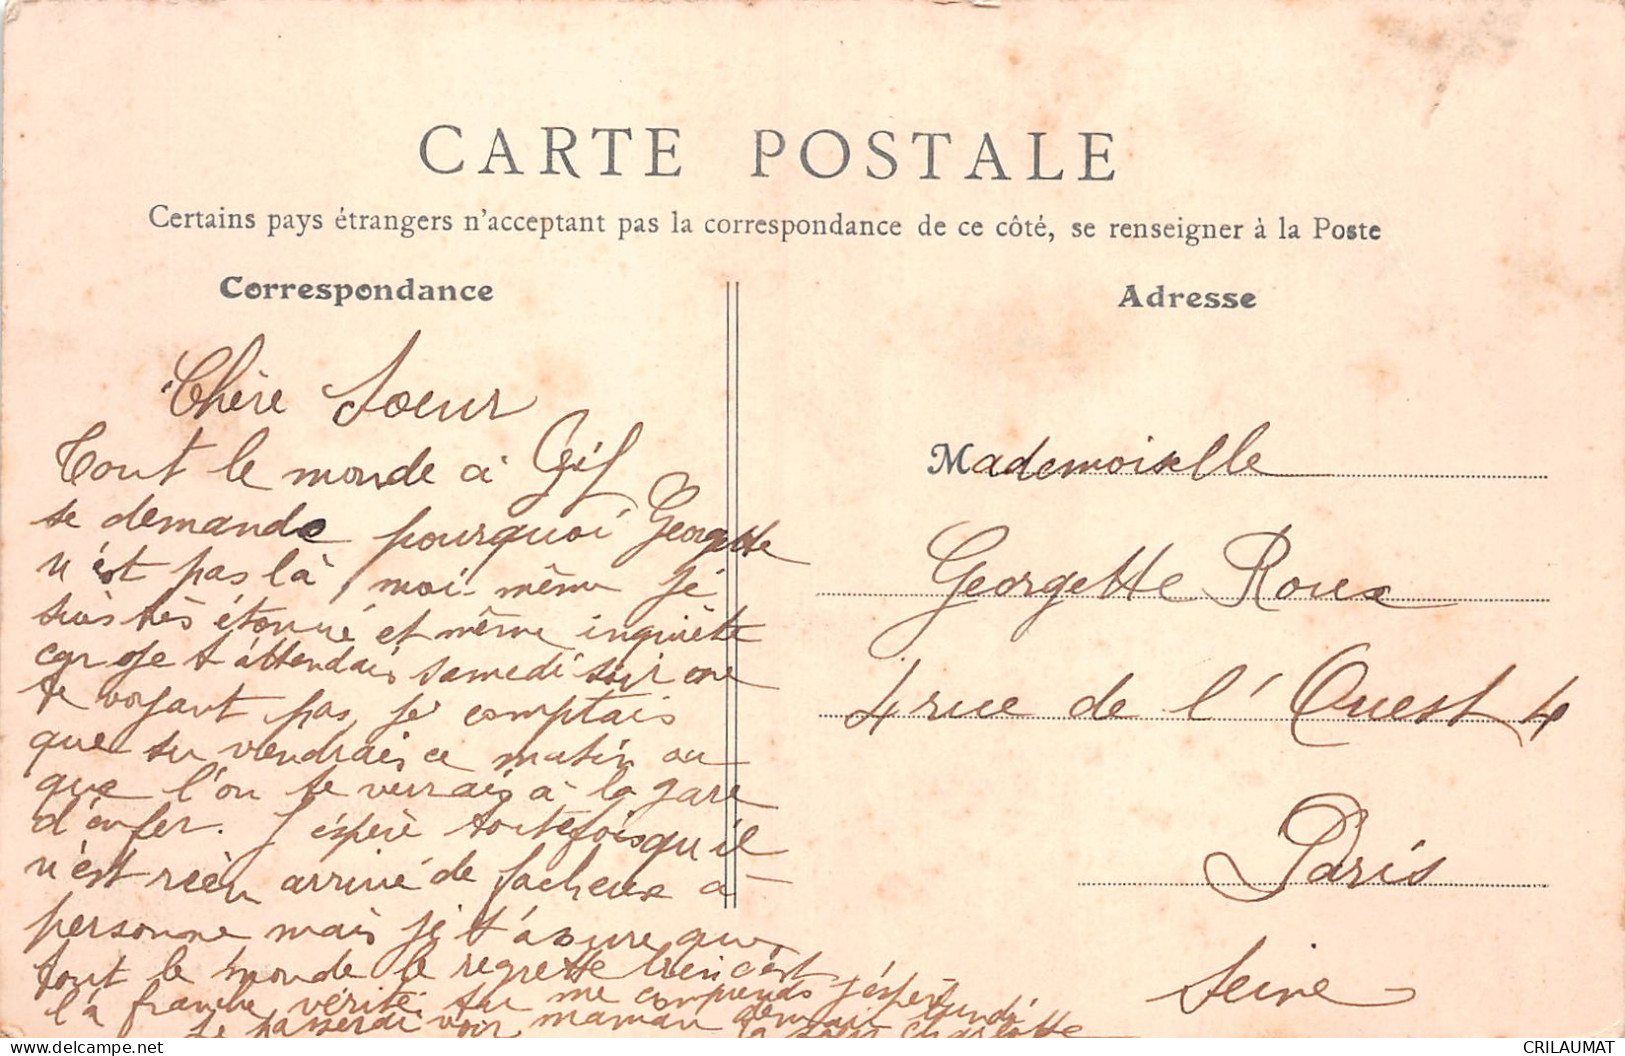 CARTE POSTALE
Certains pays étrangers n'acceptant pas la correspondance de ce côté, se renseigner à la Poste
Correspondance
Chère Soeur
Tout le monde à Gif
se demande pourquoi Georgette
n'est pas là, moi-même je
suis très étonné et même inquiète
car je t'attendais samedi soir ne
te voyant pas, je comptais
que tu viendrais ce matin ou
que l'on te verrais à la gare
d'enfer. J'espère toutefois qu'il
n'est rien arrivé de facheux a
personne mais je t'assure que
tout le monde le regrette bien c'est
la franche vérité tu me comprends j'espère lundi
je passerai voir maman demain
ta soeur Charlotte
Adresse
Mademoiselle
Georgette Roux
4 rue de l'Ouest 4
Paris
Seine
CRILAUMAT